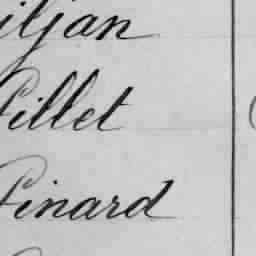 iljan
Pillet
Pinard